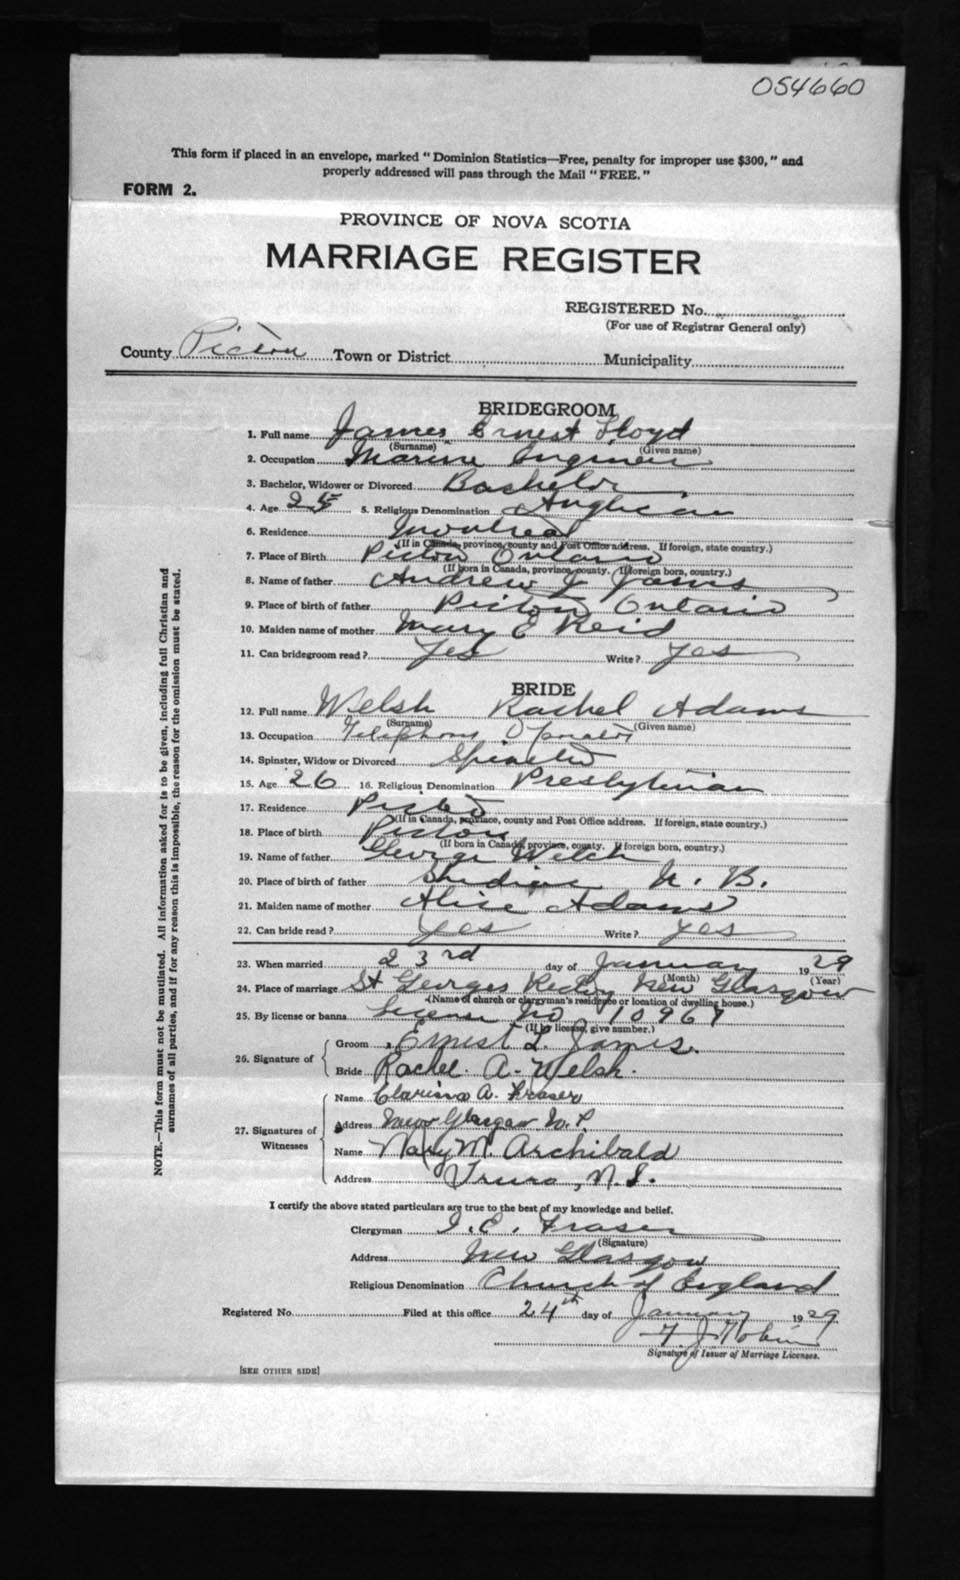 054660
This form if placed in an envelope, marked " Dominion Statistics—Free, penalty for improper use $300, " and
properly addressed will pass through the Mail " FREE. "
FORM 2.
PROVINCE OF NOVA SCOTIA
MARRIAGE REGISTER
REGISTERED No.
(For use of Registrar General only)
County Pictou Town or District Municipality
BRIDEGROOM
1. Full name James Ernest Lloyd
(Surname) (Given name)
2. Occupation Marine Engineer
3. Bachelor, Widower or Divorced Bachelor
4. Age 25 5. Religious Denomination Anglican
6. Residence Montreal
(If in Canada, province, county and Post Office address. If foreign, state country.)
7. Place of Birth Picton Ontario
(If born in Canada, province, county. If foreign born, country.)
8. Name of father Andrew J James
9. Place of birth of father Picton Ontario
10. Maiden name of mother Mary E Reid
11. Can bridegroom read? Yes Write? Yes
BRIDE
12. Full name Welsh Rachel Adams
(Surname) (Given name)
13. Occupation Telephone Operator
14. Spinster, Widow or Divorced Spinster
15. Age 26 16. Religious Denomination Presbyterian
17. Residence Pictou
(If in Canada, province, county and Post Office address. If foreign, state country.)
18. Place of birth Pictou
(If born in Canada, province, county. If foreign born, country.)
19. Name of father George Welch
20. Place of birth of father Shediac N. B.
21. Maiden name of mother Alice Adams
22. Can bride read? Yes Write? Yes
23. When married 23rd day of January 1929
(Month) (Year)
24. Place of marriage St Georges Rectory New Glasgow
(Name of church or clergyman's residence or location of dwelling house.)
25. By license or banns License No 10967
(If by license, give number.)
26. Signature of
Groom Ernest L. James.
Bride Rachel. A. Welsh.
27. Signatures of
Witnesses
Name Clarissa A. Fraser
Address New Glasgow N. S.
Name Mary M. Archibald
Address Truro, N. S.
I certify the above stated particulars are true to the best of my knowledge and belief.
Clergyman Fraser
(Signature)
Address New Glasgow
Religious Denomination Church of England
Registered No. Filed at this office 24th day of January 1929
Signature of Issuer of Marriage Licenses.
[SEE OTHER SIDE]
NOTE.—This form must not be mutilated. All information asked for is to be given, including full Christian and
surnames of all parties, and if for any reason this is impossible, the reason for the omission must be stated.